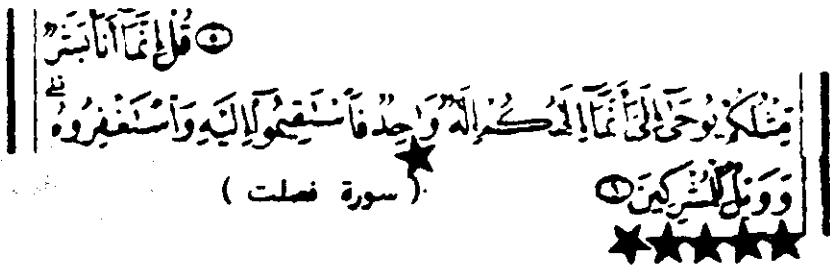 ۝٥ قُلْ إِنَّمَآ أَنَا۠ بَشَرٌ
مِّثْلُكُمْ يُوحَىٰٓ إِلَىَّ أَنَّمَآ إِلَٰهُكُمْ إِلَٰهٌ وَٰحِدٌ فَٱسْتَقِيمُوٓا۟ إِلَيْهِ وَٱسْتَغْفِرُوهُ ۗ
وَوَيْلٌ لِّلْمُشْرِكِينَ ۝٦ ( سورة فصلت )